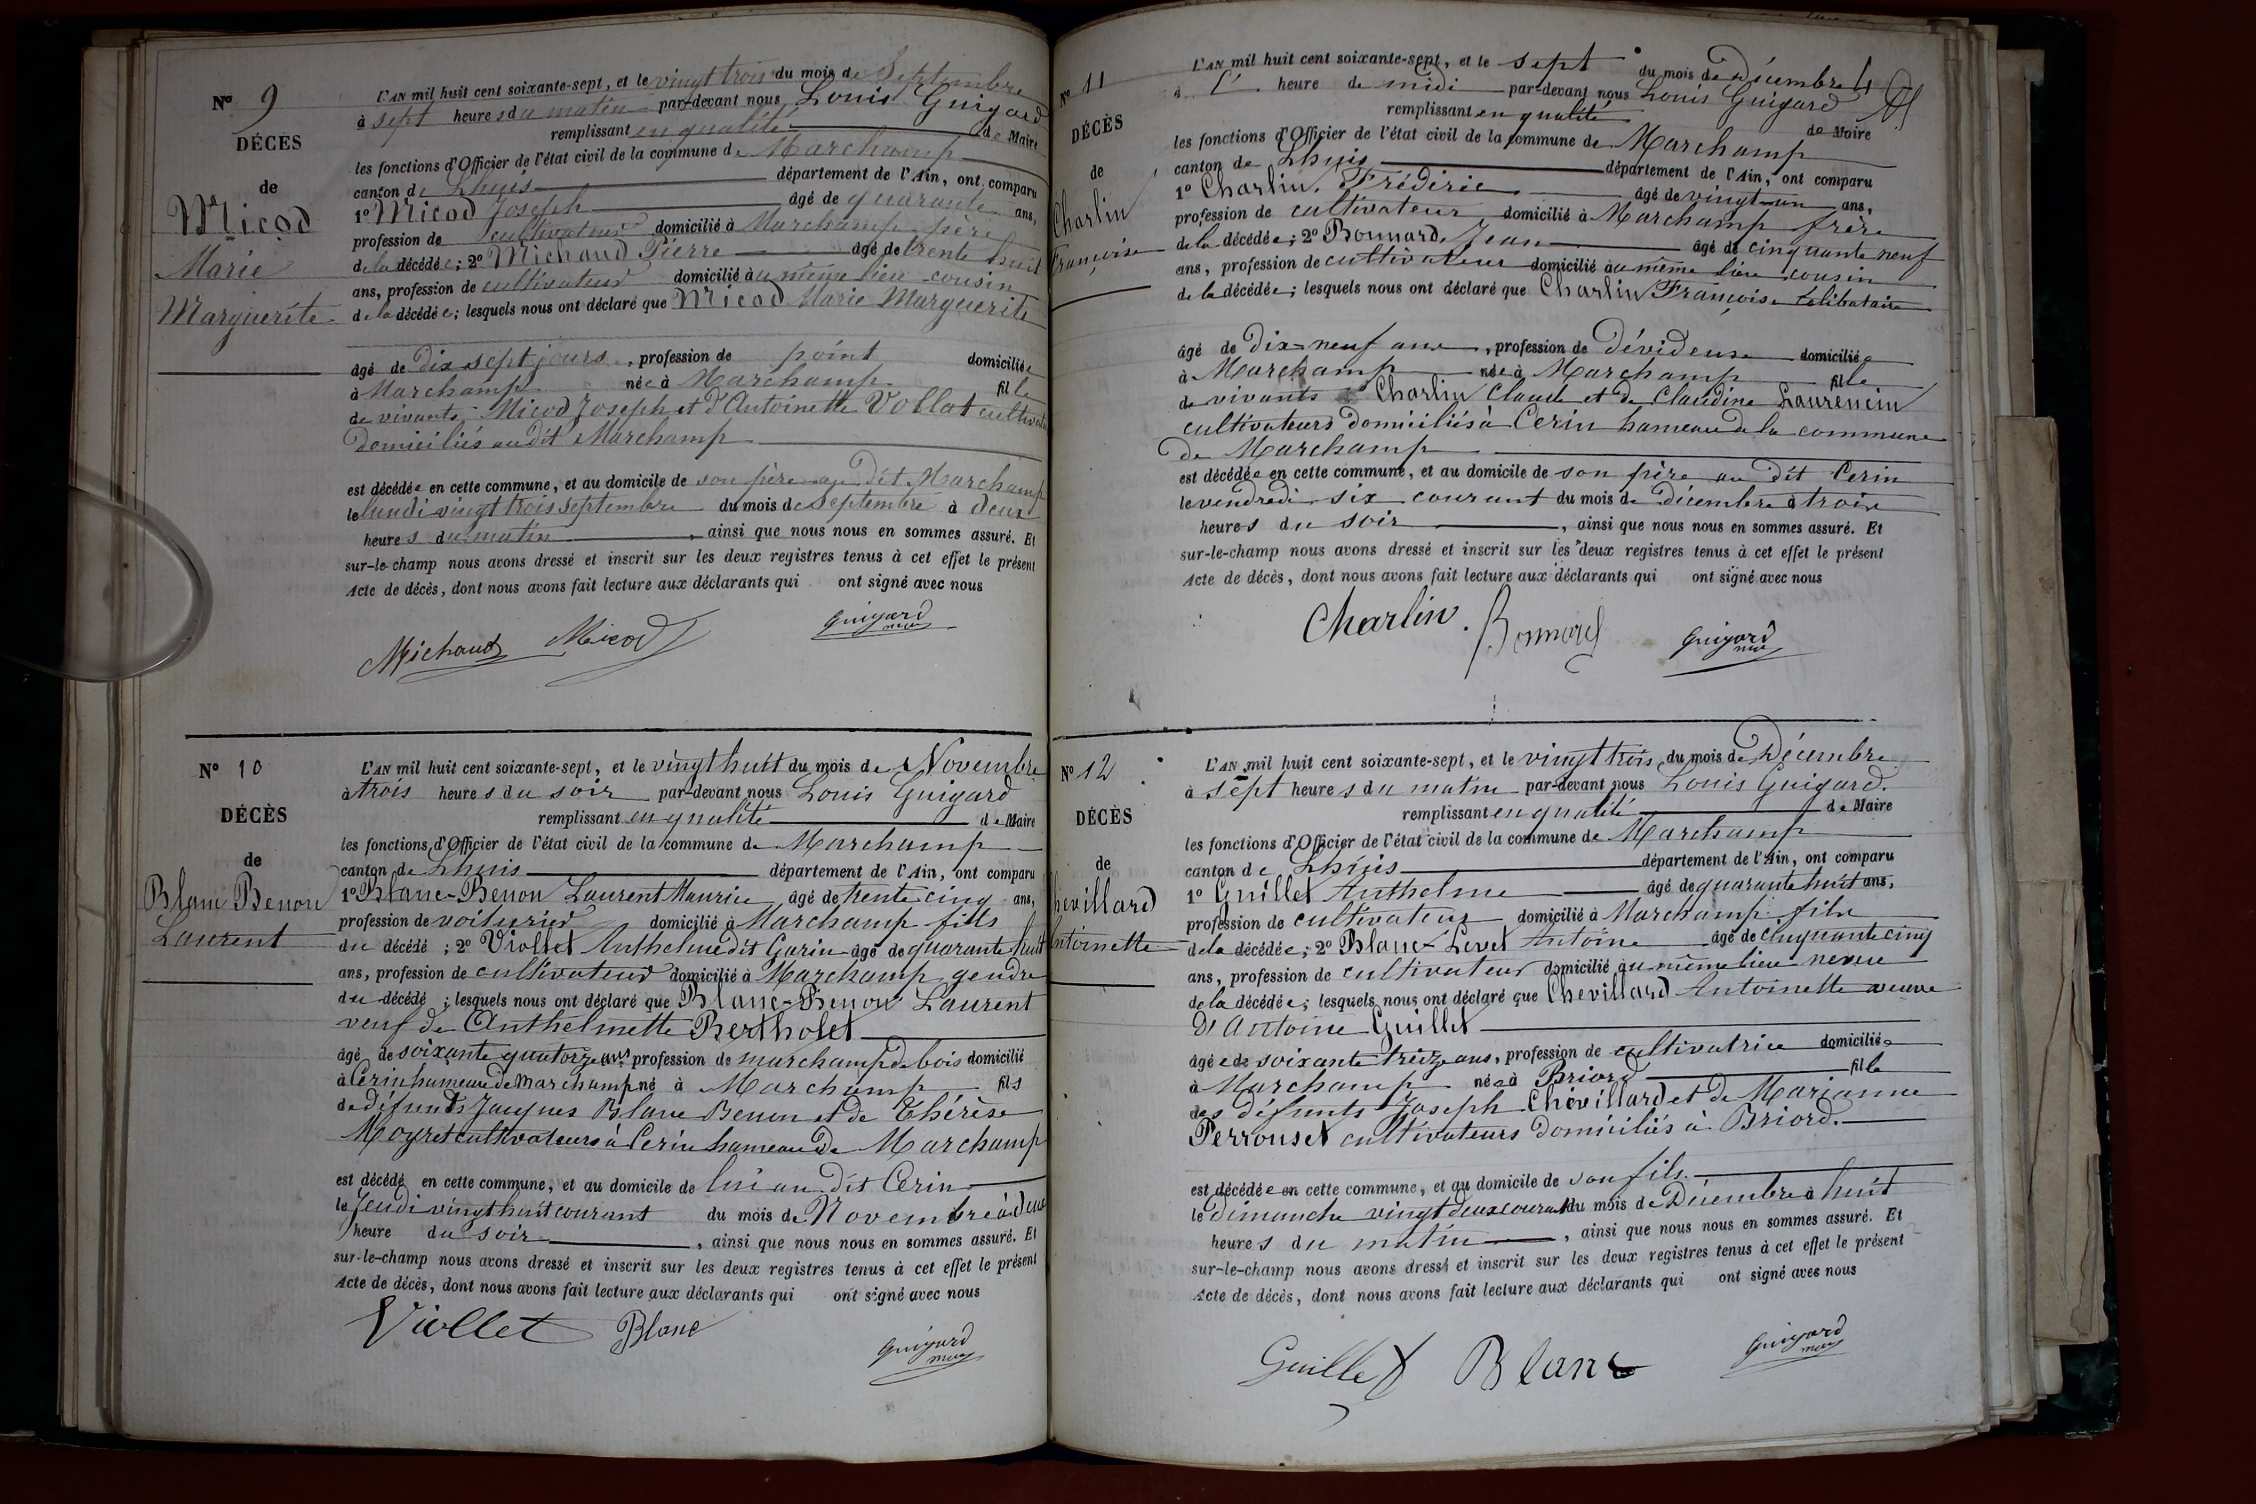 N° 9
DÉCÈS
de
Micod
Marie
Marguerite
L'AN mil huit cent soixante-sept, et le vingt trois du mois de Septembre
à sept heures du matin par-devant nous Louis Guigard
remplissant en qualité de Maire
les fonctions d'Officier de l'état civil de la commune de Marchamp
canton de Lhuis département de l'Ain, ont comparu
1° Micod Joseph âgé de quarante ans,
profession de cultivateur domicilié à Marchamp père
de la décédée; 2° Michaud Pierre âgé de trente huit
ans, profession de cultivateur domicilié au même lieu cousin
de la décédée; lesquels nous ont déclaré que Micod Marie Marguerite
âgé de dix sept jours, profession de point domiciliée
à Marchamp née à Marchamp fille
de vivants Micod Joseph et d'Antoinette Vollat
domiciliés au dit Marchamp
est décédée en cette commune, et au domicile de son père au dit Marchamp
le lundi vingt trois septembre du mois de septembre à deux
heures du matin, ainsi que nous nous en sommes assuré. Et
sur-le-champ nous avons dressé et inscrit sur les deux registres tenus à cet effet le présent
Acte de décès, dont nous avons fait lecture aux déclarants qui ont signé avec nous
Michaud Micod Guigard
N° 10
DÉCÈS
de
Blanc Benon
Laurent
L'AN mil huit cent soixante-sept, et le vingt huit du mois de Novembre
à trois heures du soir par-devant nous Louis Guigard
remplissant en qualité de Maire
les fonctions d'Officier de l'état civil de la commune de Marchamp
canton de Lhuis département de l'Ain, ont comparu
1° Blanc-Benon Laurent Maurice âgé de trente cinq ans,
profession de voiturier domicilié à Marchamp fils
du décédé; 2° Viollet Anthelme dit Garin âgé de quarante huit
ans, profession de cultivateur domicilié à Marchamp gendre
du décédé; lesquels nous ont déclaré que Blanc-Benon Laurent
veuf de Anthelmette Bertholet
âgé de soixante quatorze ans profession de marchamp de bois domicilié
à Cerin hameau de Marchamp né à Marchamp fils
de défunts Jacques Blanc Benon et de Thérèse
Moyret cultivateurs à Cerin hameau de Marchamp
est décédé en cette commune, et au domicile de lui au dit Cerin
le Jeudi vingt huit courant du mois de Novembre à deux
heure du soir, ainsi que nous nous en sommes assuré. Et
sur-le-champ nous avons dressé et inscrit sur les deux registres tenus à cet effet le présent
Acte de décès, dont nous avons fait lecture aux déclarants qui ont signé avec nous
Viollet Blanc Guigard
N° 11
DÉCÈS
de
Charlin
Françoise
L'AN mil huit cent soixante-sept, et le sept du mois de Décembre
à 1 heure de midi par-devant nous Louis Guigard
remplissant en qualité de Maire
les fonctions d'Officier de l'état civil de la commune de Marchamp
canton de Lhuis département de l'Ain, ont comparu
1° Charlin Frédéric âgé de vingt-un ans,
profession de cultivateur domicilié à Marchamp frère
de la décédée; 2° Bonnard Jean âgé de cinquante neuf
ans, profession de cultivateur domicilié au même lieu cousin
de la décédée; lesquels nous ont déclaré que Charlin Françoise célibataire
âgé de dix-neuf ans, profession de dévideuse domiciliée
à Marchamp née à Marchamp fille
de vivants Charlin Claude et de Claudine Laurencin
cultivateurs domiciliés à Cerin hameau de la commune
de Marchamp
est décédée en cette commune, et au domicile de son père au dit Cerin
le vendredi six courant du mois de décembre à trois
heures du soir, ainsi que nous nous en sommes assuré. Et
sur-le-champ nous avons dressé et inscrit sur les deux registres tenus à cet effet le présent
Acte de décès, dont nous avons fait lecture aux déclarants qui ont signé avec nous
Charlin Bonnard Guigard
N° 12
DÉCÈS
de
hevillard
Antoinette
L'AN mil huit cent soixante-sept, et le vingt trois du mois de Décembre
à sept heures du matin par-devant nous Louis Guigard.
remplissant en qualité de Maire
les fonctions d'Officier de l'état civil de la commune de Marchamp
canton de Lhuis département de l'Ain, ont comparu
1° Guillet Anthelme âgé de quarante huit ans,
profession de cultivateur domicilié à Marchamp fils
de la décédée; 2° Blanc-Levet Antoine âgé de cinquante cinq
ans, profession de cultivateur domicilié au même lieu neveu
de la décédée; lesquels nous ont déclaré que Chevillard Antoinette veuve
d'Antoine Guillet
âgée de soixante treize ans, profession de cultivatrice domiciliée
à Marchamp née à Briord fille
des défunts Joseph Chevillard et de Marianne
Perrouset cultivateurs domiciliés à Briord.
est décédée en cette commune, et au domicile de son fils
le dimanche vingt deux courant du mois de Décembre à huit
heures du matin, ainsi que nous nous en sommes assuré. Et
sur-le-champ nous avons dressé et inscrit sur les deux registres tenus à cet effet le présent
Acte de décès, dont nous avons fait lecture aux déclarants qui ont signé avec nous
Guillet Blanc Guigard